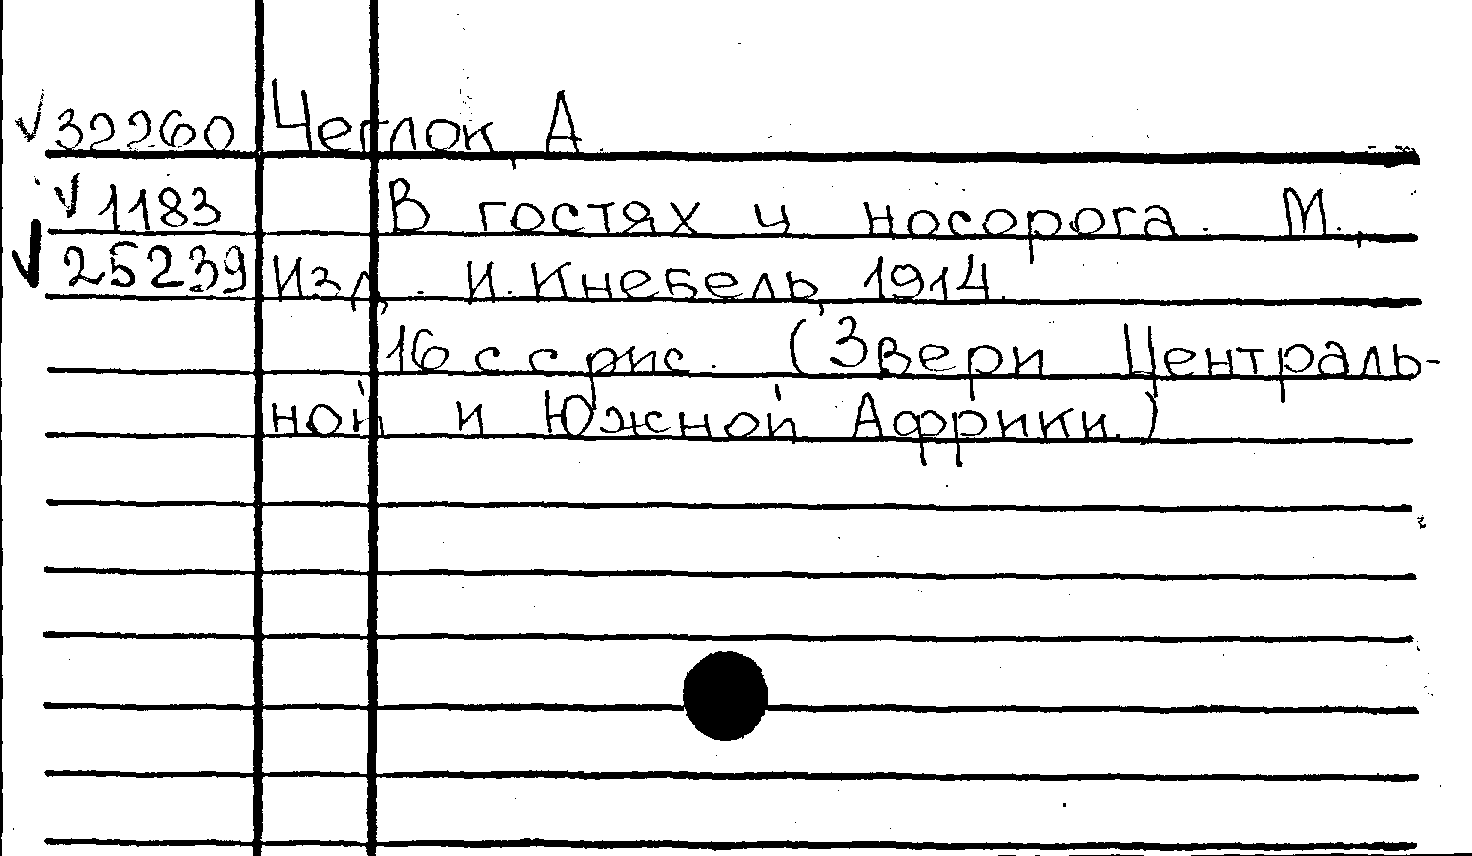 √32260 Чеглок, А.
√1183 В гостях у носорога. М.,
√25239 Изд. И. Кнебель, 1914.
16 с с рис. (Звери Централь-
ной и Южной Африки.)